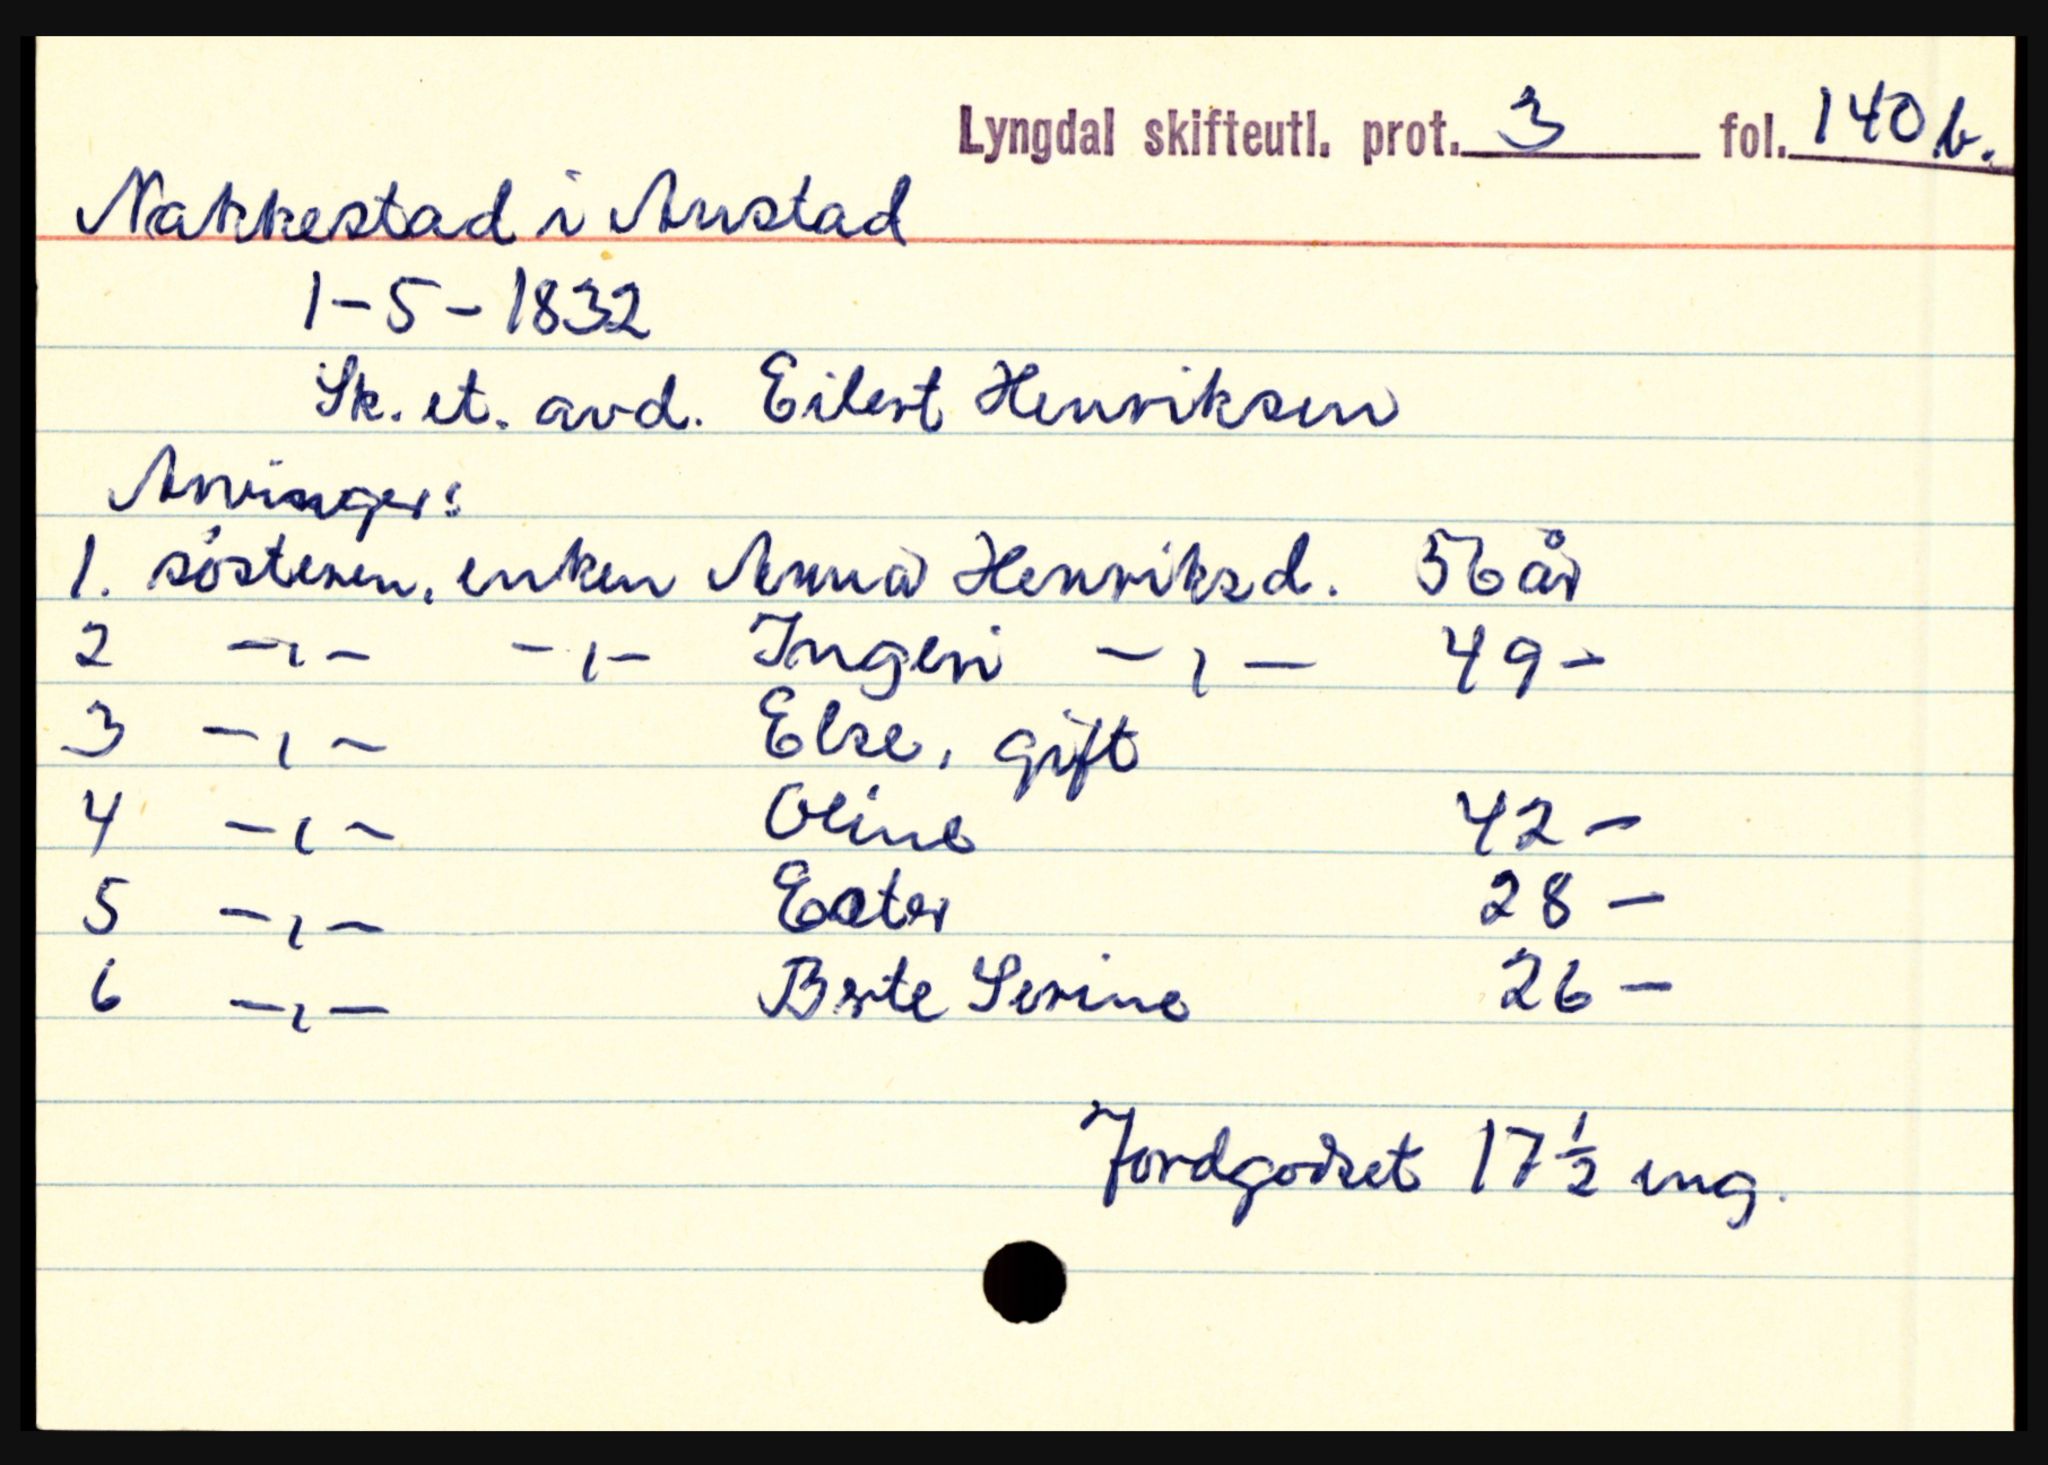 Lyngdal skifteutl. prot. 3 fol. 140 b.
Nakkestad i Austad
1-5-1832
Sk. et. avd. Eilert Henriksen
Arvinger:
1. søsteren, enken Anna Henriksd. 56 år
2 -,- -,- Ingeri -,- 49 -
3 -,- Else, gift
4 -,- Oline 42 -
5 -,- Ester 28 -
6 -,- Berte Serine 26 -
Jordgodset 17 ½ eng.